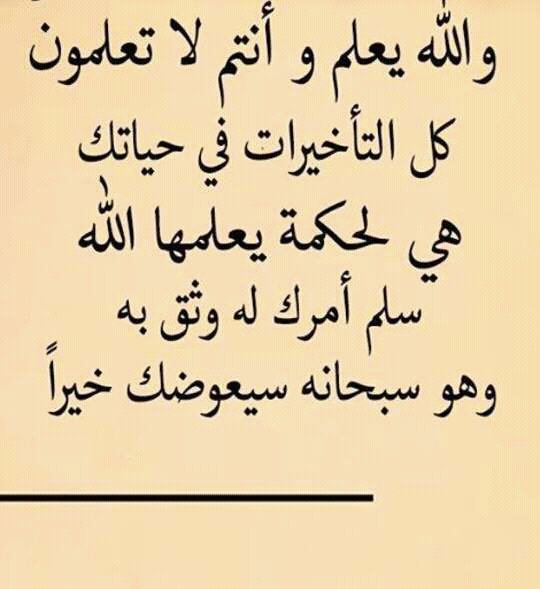 والله يعلم و أنتم لا تعلمون
كل التأخيرات في حياتك
هي لحكمة يعلمها الله
سلم أمرك له وثق به
وهو سبحانه سيعوضك خيراً